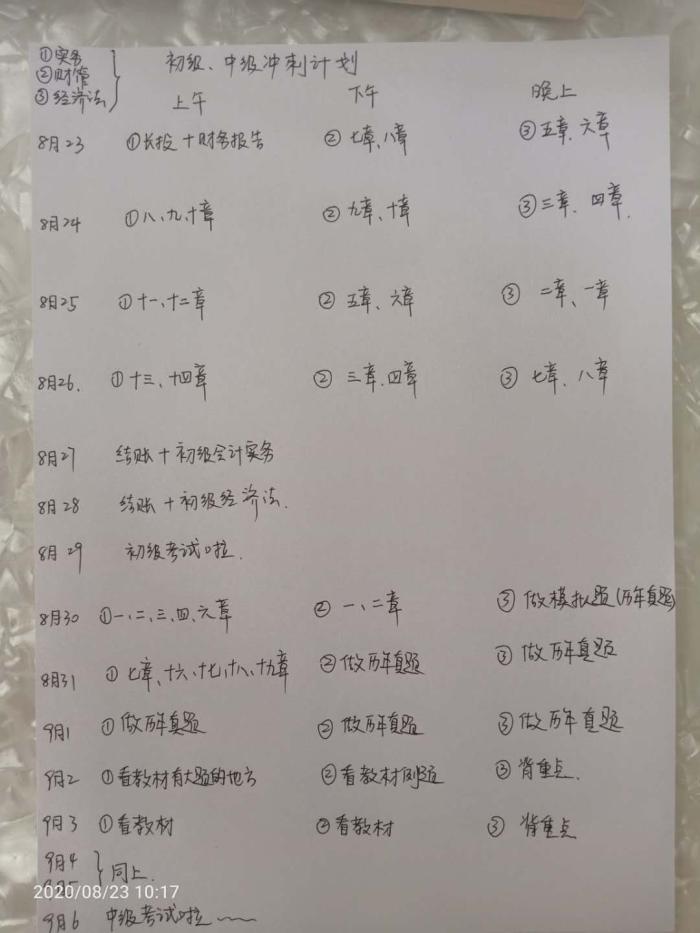 ①实务
②财管
③经济法
初级、中级冲刺计划
上午 下午 晚上
8月23 ①长投+财务报告 ②七章、八章 ③五章、六章
8月24 ①八、九、十章 ②九章、十章 ③三章、四章.
8月25 ①十一、十二章 ②五章、六章 ③二章、一章
8月26. ①十三、十四章 ②三章、四章 ③七章、八章
8月27 结账+初级会计实务
8月28 结账+初级经济法.
8月29 初级考试啦.
8月30 ①一、二、三、四、六章 ②一、二章 ③做模拟题(历年真题)
8月31 ①七章、十六、十七、十八、十九章 ②做历年真题 ③做历年真题
9月1 ①做历年真题 ②做历年真题 ③做历年真题
9月2 ①看教材有大题的地方 ②看教材例题 ③背重点.
9月3 ①看教材 ②看教材 ③背重点
9月4
9月5
同上.
2020/08/23 10:17
9月6 中级考试啦~~~